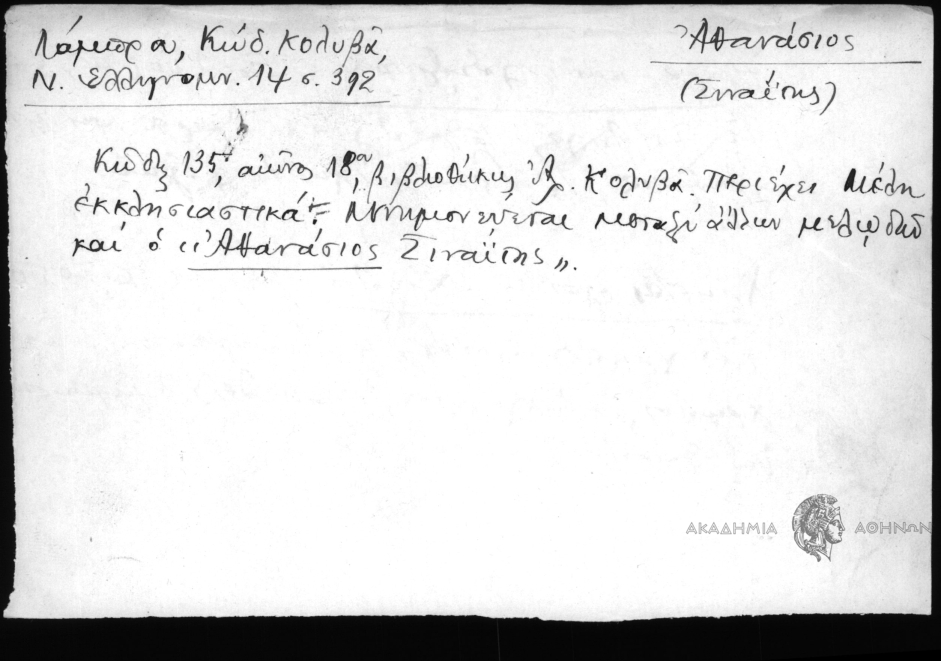 Λάμπρου, Κώδ. Κολυβᾶ,
Ν. Ἑλληνομν. 14 σ. 392
Ἀθανάσιος
(Σιναΐτης)
Κῶδιξ 135, αἰῶνος 18ου, βιβλιοθήκης Ἀλ. Κολυβᾶ. Περιέχει Μέλη
ἐκκλησιαστικά. Μνημονεύεται μεταξὺ ἄλλων μελῳδῶν
καὶ ὁ „Ἀθανάσιος Σιναΐτης„.
ΑΚΑΔΗΜΙΑ ΑΘΗΝΩΝ